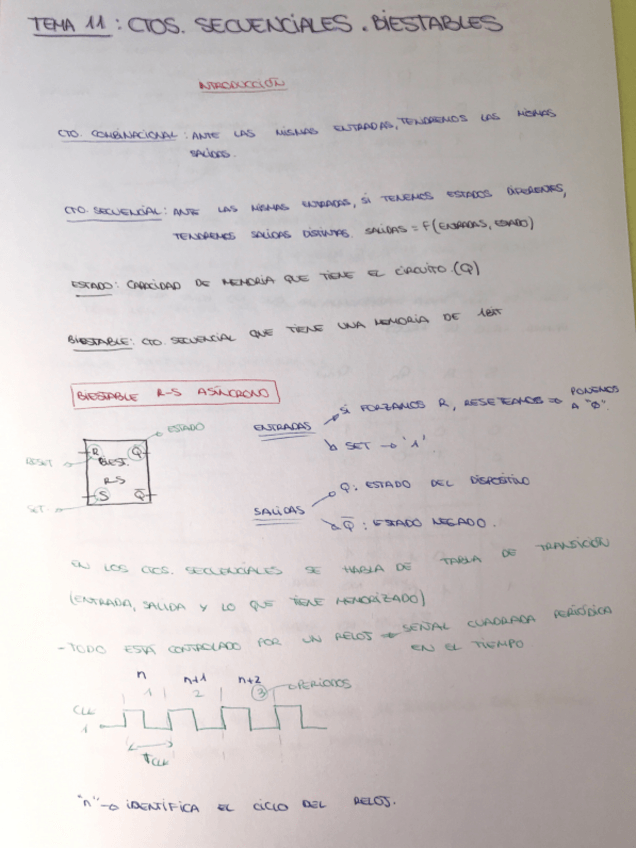 TEMA 11: CTOS. SECUENCIALES. BIESTABLES
INTRODUCCIÓN
CTO. COMBINACIONAL: ANTE LAS MISMAS ENTRADAS, TENDREMOS LAS MISMAS
SALIDAS.
CTO. SECUENCIAL: ANTE LAS MISMAS ENTRADAS, SI TENEMOS ESTADOS DIFERENTES,
TENDREMOS SALIDAS DISTINTAS. SALIDAS = F(ENTRADAS, ESTADO)
ESTADO: CAPACIDAD DE MEMORIA QUE TIENE EL CIRCUITO. (Q)
BIESTABLE: CTO. SECUENCIAL QUE TIENE UNA MEMORIA DE 1BIT
BIESTABLE R-S ASÍNCRONO
ENTRADAS
SI FORZAMOS R, RESETEAMOS ⇒ PONEMOS
A "Ø".
SET → '1'.
ESTADO
RESET
R Q
BIEST.
RS
S Q̅
SET
SALIDAS
Q: ESTADO DEL DISPOSITIVO
Q̅: ESTADO NEGADO.
EN LOS CTOS. SECUENCIALES SE HABLA DE TABLA DE TRANSICIÓN
(ENTRADA, SALIDA Y LO QUE TIENE MEMORIZADO)
- TODO ESTÁ CONTROLADO POR UN RELOJ ⇒ SEÑAL CUADRADA PERIÓDICA
EN EL TIEMPO
n n+1 n+2
1 2 3 → PERÍODOS
CLK
1
TCLK
"n" → IDENTIFICA EL CICLO DEL RELOJ.